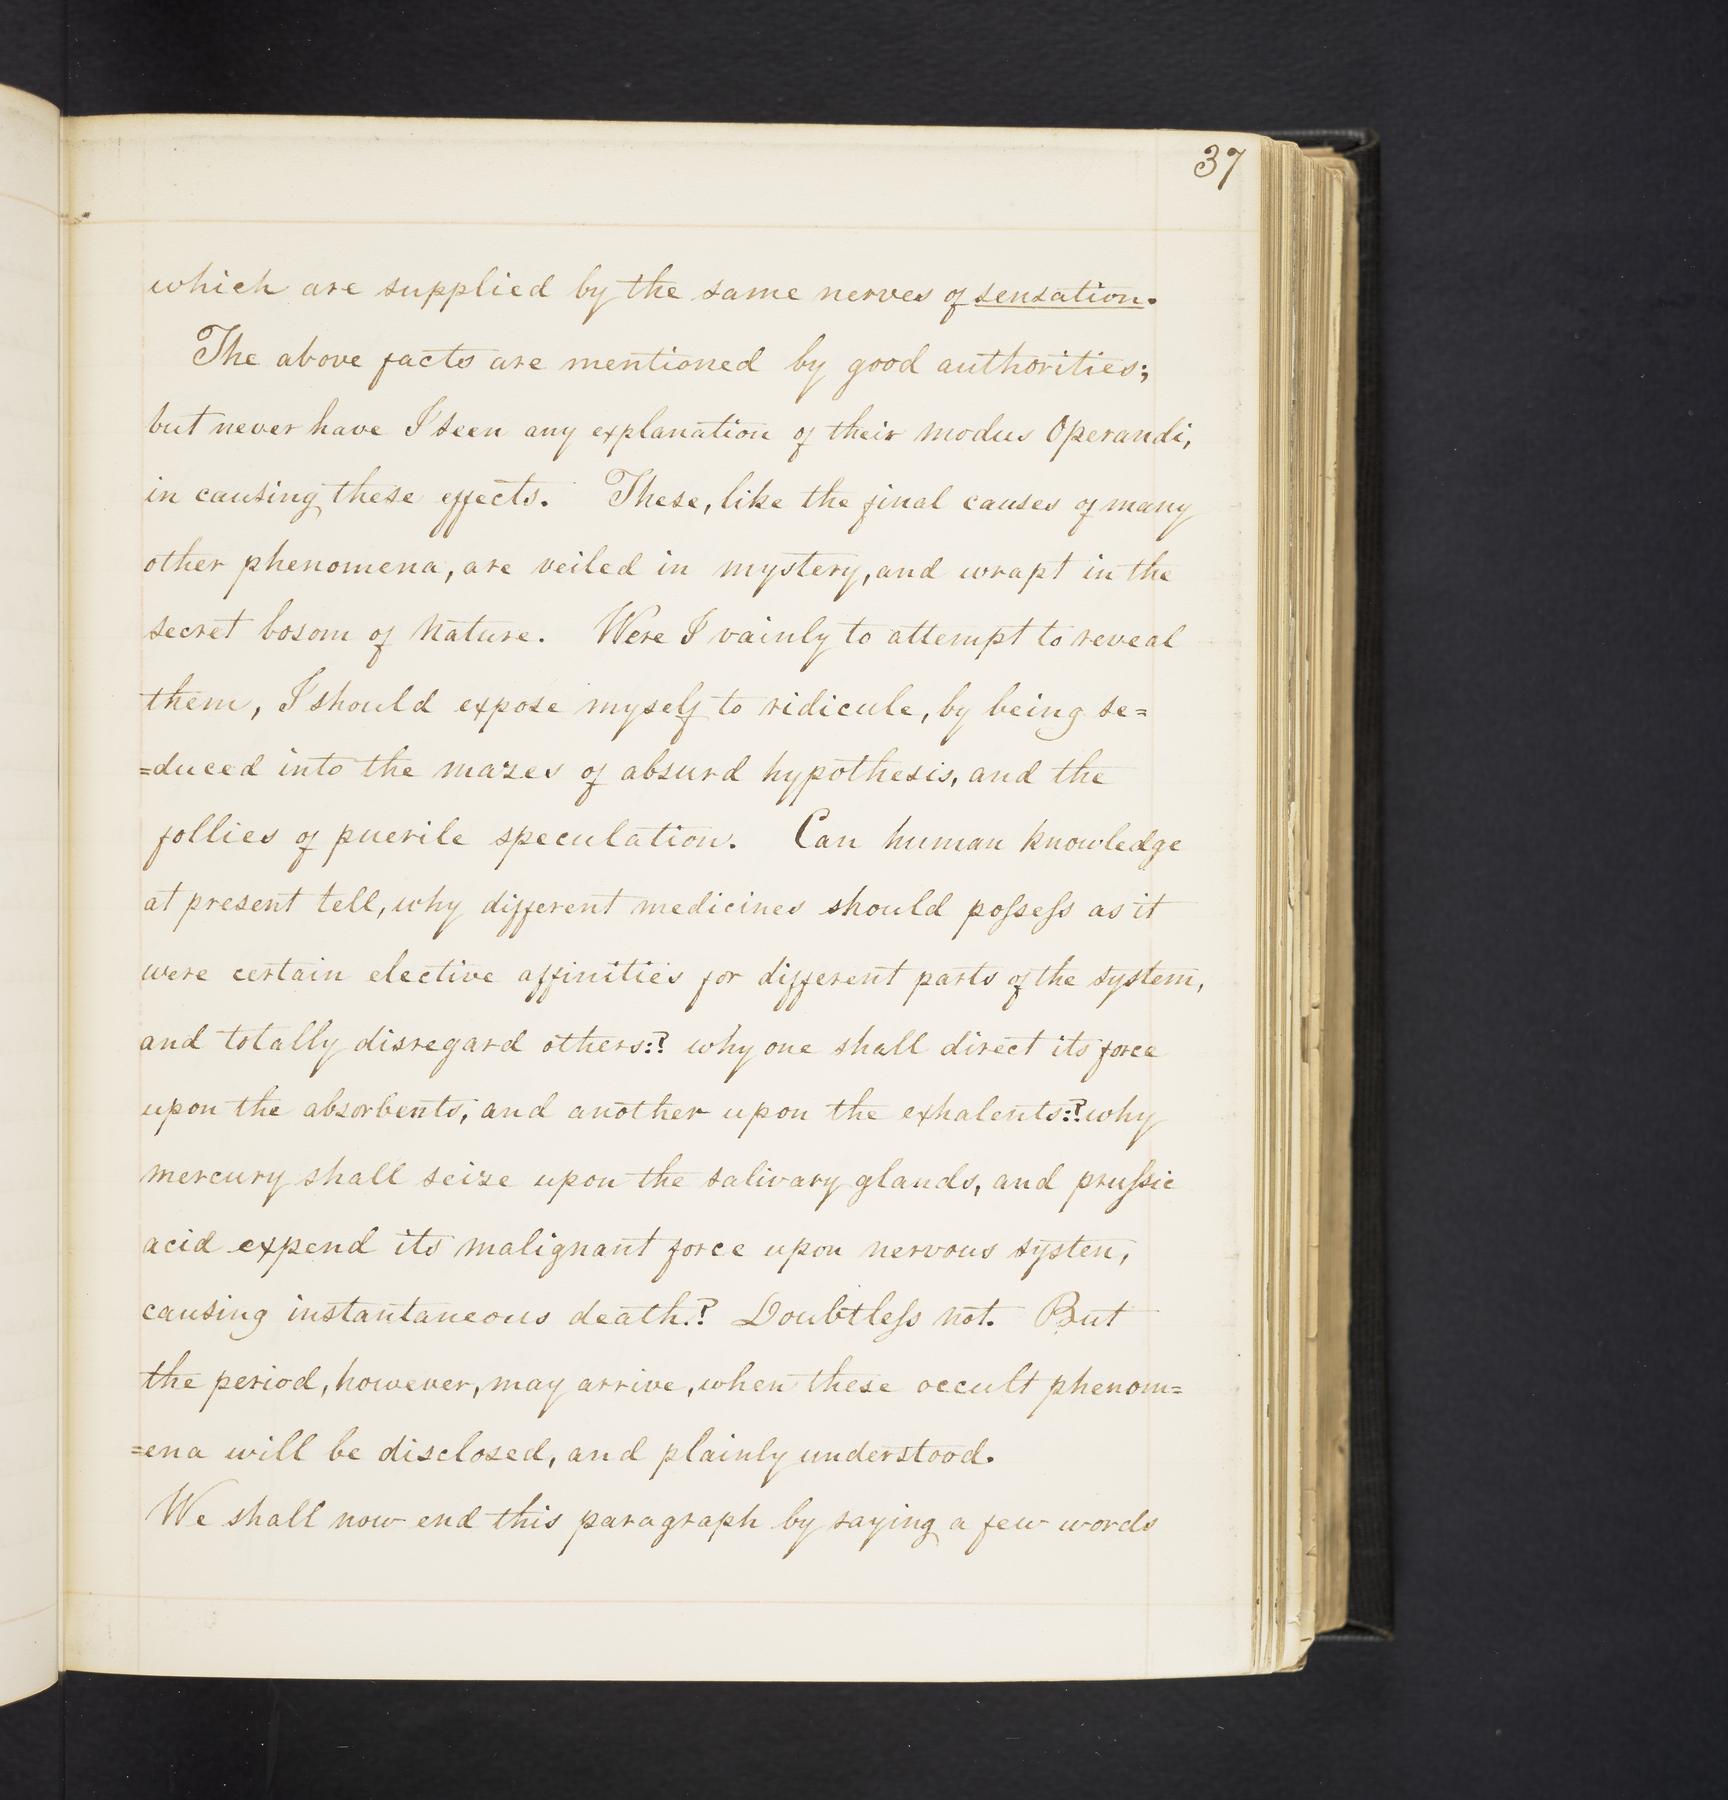 37
which are supplied by the same nerves of sensation.
The above facts are mentioned by good authorities;
but never have I seen any explanation of their modus Operandi,
in causing these effects. These, like the final causes of many
other phenomena, are veiled in mystery, and wrapt in the
secret bosom of Nature. Were I vainly to attempt to reveal
them, I should expose myself to ridicule, by being se=
=duced into the mazes of absurd hypothesis, and the
follies of puerile speculation. Can human knowledge
at present tell, why different medicines should poſseſs as it
were certain elective affinities for different parts of the system,
and totally disregard others:? why one shall direct its force
upon the absorbents, and another upon the exhalents:? why
mercury shall seize upon the salivary glands, and pruſsic
acid expend its malignant force upon nervous systen,
causing instantaneous death.? Doubtleſs not. But
the period, however, may arrive, when these occult phenom=
=ena will be disclosed, and plainly understood.
We shall now end this paragraph by saying a few words